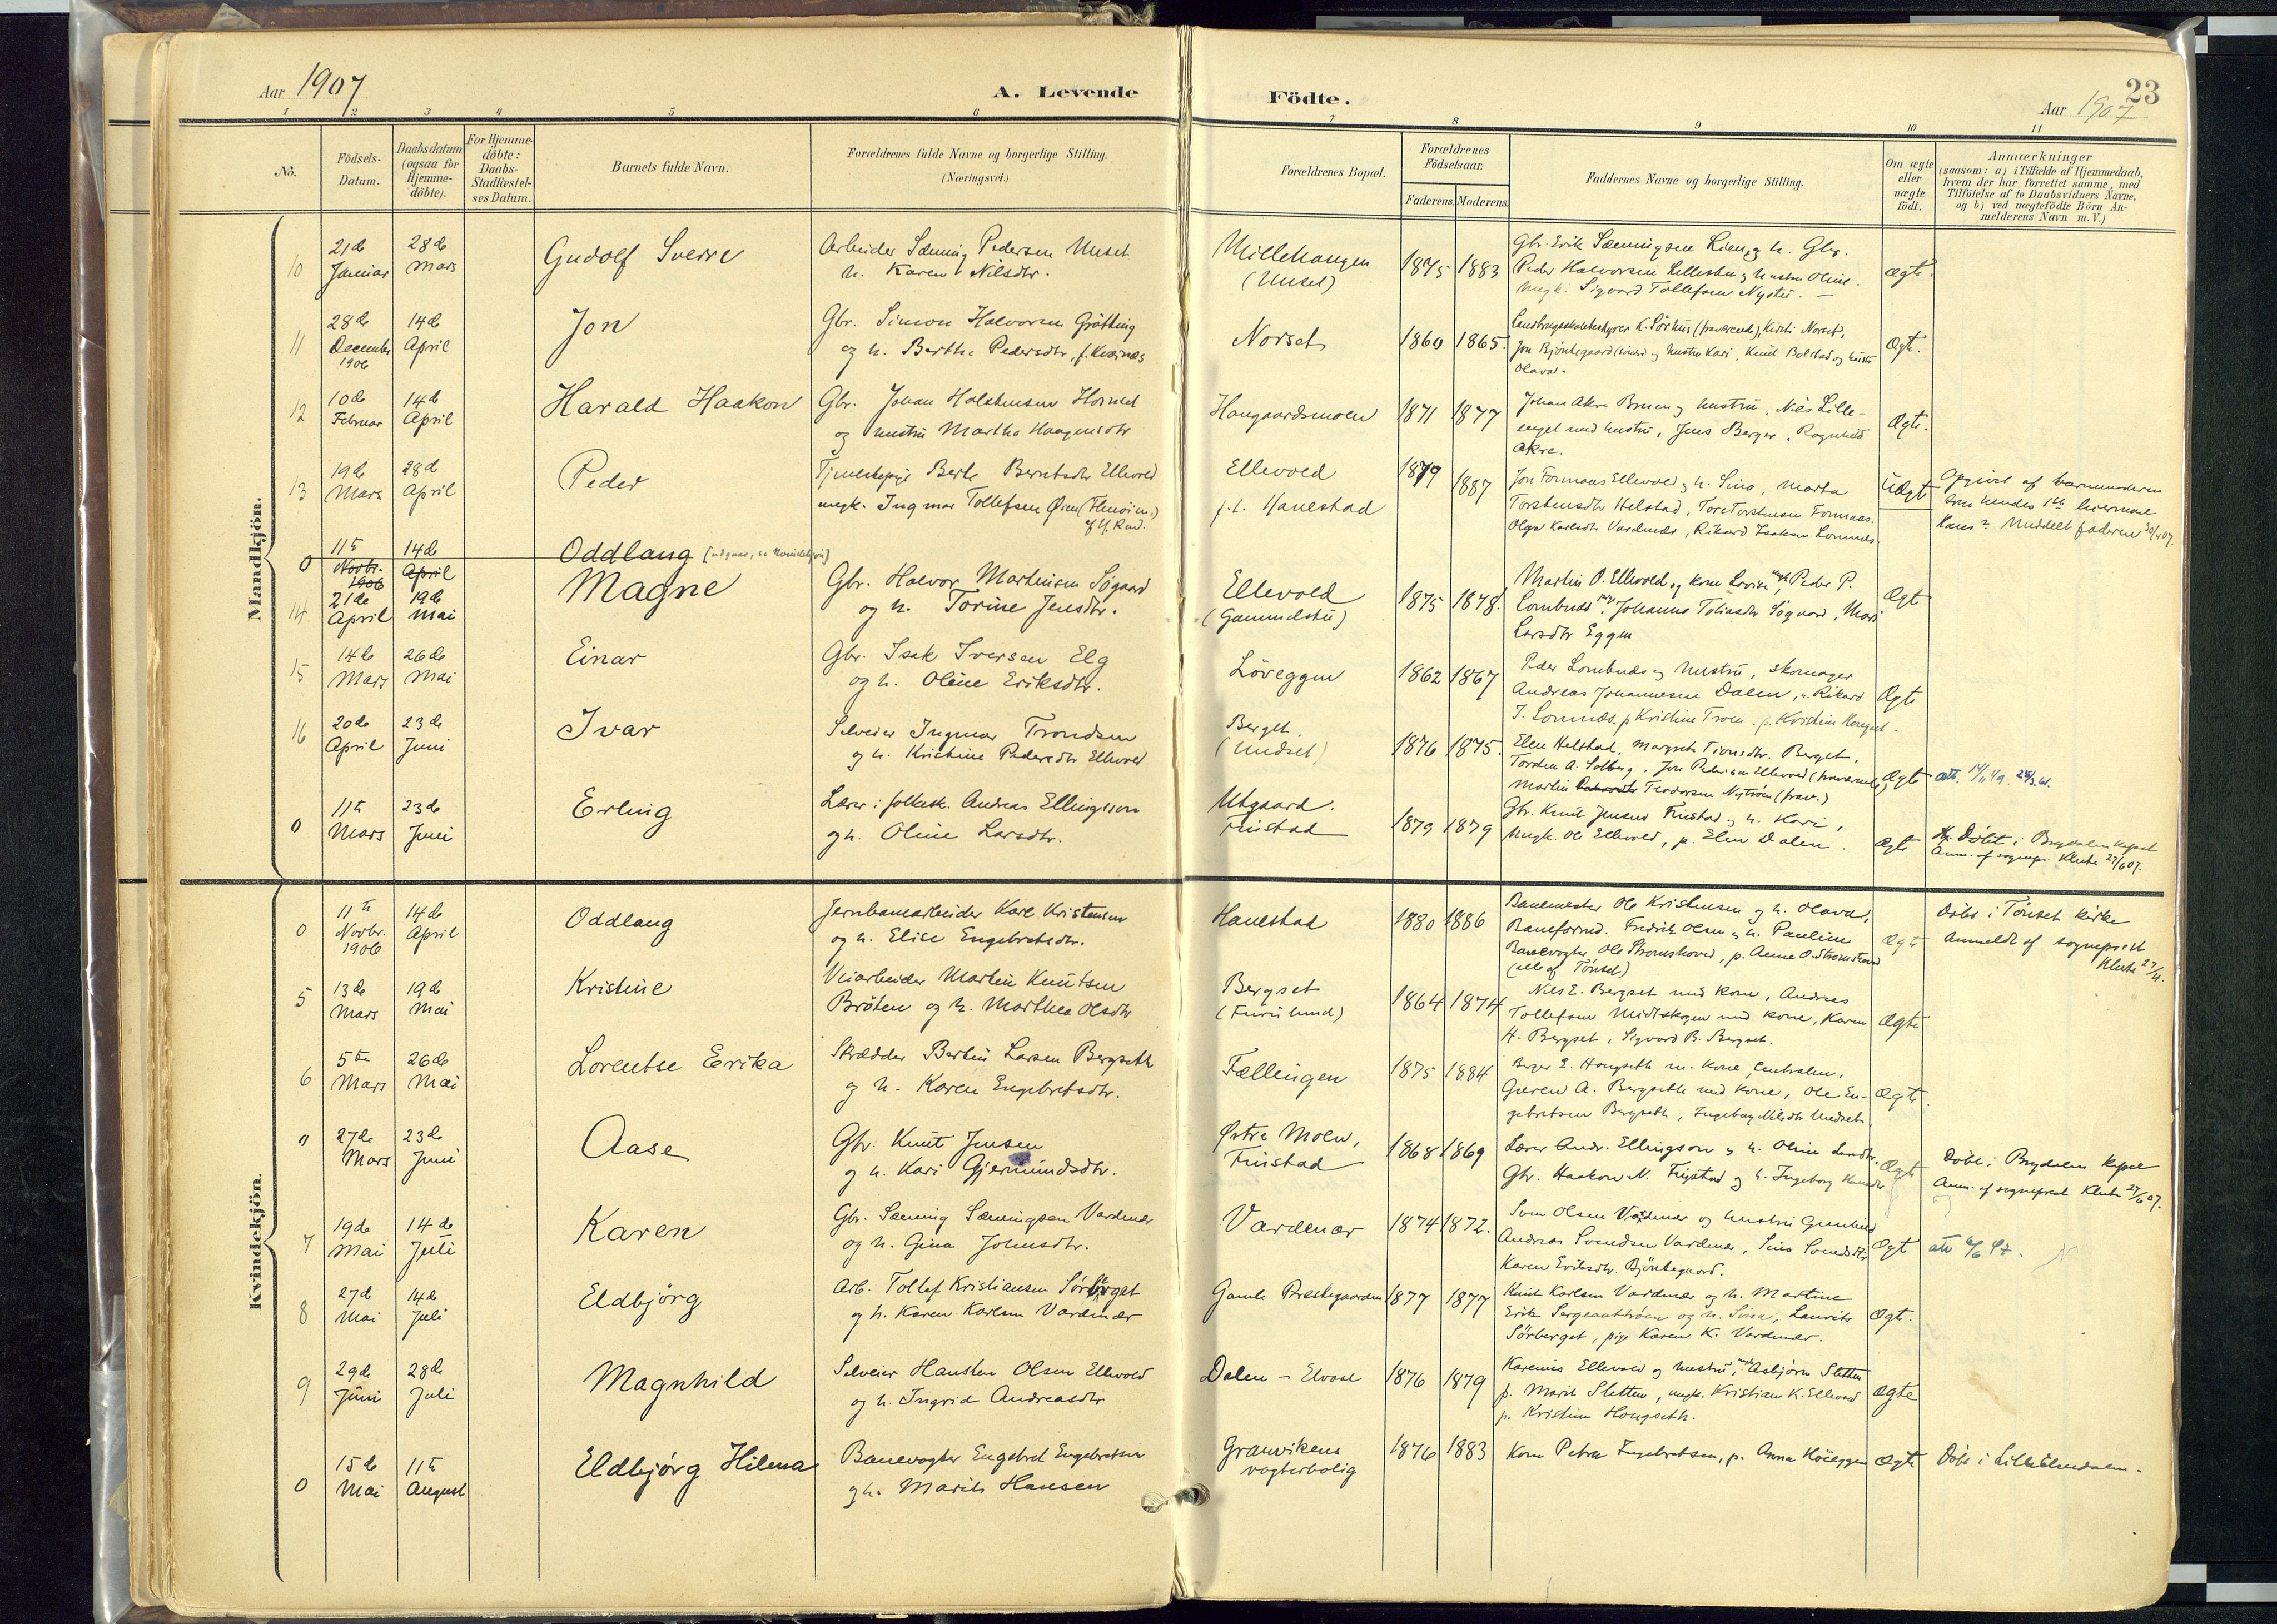 Aar 1907
A. Levende
Födte.
23
Aar 1907
1 2 3 4 5 6 7 8 9 10 11
No.
Födsels-
Datum.
Daabsdatum
(ogsaa for
Hjemme-
döbte).
For Hjemme-
döbte:
Daabs-
Stadfæstel-
ses Datum.
Barnets fulde Navn.
Forældrenes fulde Navne og borgerlige Stilling.
(Næringsvei.)
Forældrenes Bopæl.
Forældrenes
Födselsaar.
Faderens. Moderens.
Faddernes Navne og borgerlige Stilling.
Om ægte
eller
uægte
födt.
Anmærkninger
(saasom: a) i Tilfælde af Hjemmedaab,
hvem der har forrettet samme, med
Tilföielse af to Daabsvidners Navne.
og b) ved uægtefödte Börn An-
melderens Navn m. V.)
Mandkjön.
10
21de
Januar
28de
Mars
Gudolf Sverre
Arbeider Sæming Pedersen Unset
h. Karen Nilsdtr.
(Unset)
1875 1883
Gbr. Erik Sæmingsen Lien og h. Gbr.
Peder Halvorsen og hustru Oline.
ungk. Sigvard Tollefsen Nystu.
ægte.
11
28de
December
1906
14de
April
Jon
Gbr. Simon Halvorsen Grötting
og h. Berthe Pedersdtr. f. Kværnes
Norset
1860 1865.
K. Sörhus (fraværende), Kirsti Norset,
Jon Bjöntegaard og hustru Kari, Knut Bolstad og hustru
Olava.
Ægte.
12
10de
Februar
14de
April
Harald Haakon
Gbr. Johan Halstensen Hornset
og hustru Martha Haagensdtr
Haugaardsmoen
1871 1877
Johan Akre Bruen og hustru, Nils Lille-
enget med hustru, Jens Berger, Ragnhild
Akre.
Ægte.
13
19de
Mars
28d
April
Peder
Tjenestepige Berte Berntsdtr Ellevold
ungk. Ingmar Tollefsen Öien
af Y. Rend.
Ellevold
p.t. Hanestad
1879 1887
Jon Formaas Ellevold og h. Sina, Marta
Torstensdtr Helstad, Tore Torstensen Formaas.
Olga Karlsdtr Vardenær, Rikard Isaksen Lomnes.
Uægt
Opgivet af barnemoderen
som hendes 1ste leiermaal
Hans ? Meddelt faderen 30/4 07.
0
11te
Novbr.
1906
14de
April
Oddlaug [udgaar, se Kvindekjön]
14
21de
April
19de
Mai
Magne
Gbr. Halvor Martinsen Sögaard
og h. Torine Jensdtr.
Ellevold
(Gammelstu)
1875 1878.
Martin O. Ellevold og kone Lovise, ungk Peder P.
Lombnæs, pige Johanna Tobiasdtr Sögaard, Mari
Larsdtr Eggen
Ægt
15
14de
Mars
26de
Mai
Einar
Gbr. Isak Iversen Elg
og h. Oline Eriksdtr.
Löveggen
1862 1867
Peder Lombnæs og hustru, skomager
Andreas Johannesen Dalen, u. Rikard
I. Lomnæs. p Kristine Troen. p. Kristine Haugset.
Ægte
16
20de
April
23de
Juni
Ivar
Selveier Ingmar Trondsen
og h. Kristine Pedersdtr Ellevold
Berget.
(Undset)
1876 1875.
Elen Helstad, Margrete Berget,
Torsten A. Solberg, Jon Pedersen Ellevold (fraværende)
Martin Teodorsen Nyström (frav.)
Ægte
att. 14/11 49. 25/3 61.
0
11te
Mars
23de
Juni
Erling
Lærer i folkesk. Andreas Ellingsson
og h. Oline Larsdtr.
Utgaard.
Finstad
1879 1879
Gbr. Knut Jensen Finstad og h. Kari,
Ungk. Ole Ellevold, p. Elen Dalen.
Ægte
Döbt i Brydalen kapel
Anm. af sognepr. Klute 27/6 07.
Kvindekjön.
0
11te
Novbr.
1906
14de
April
Oddlaug
Jernbanearbeider Karl Kristensen
og h. Elise Engebretsdtr.
Hanestad
1880 1886
Banemester Ole Kristensen og h. Olava,
Baneformd. Fredrik Olsen og h. Pauline
Banevogter Ole Strömshoved, p. Anne O. Strömshoved
(alle af Tönset)
Ægte
Döbt i Tönset kirke
Anmeldt af sogneprest
Klute 27/4.
5
13de
Mars
19de
Mai
Kristine
Veiarbeider Martin Knutsen
Bröten og h. Marthea Olsdtr
Bergset
(Furulund)
1864 1874
Nils E. Bergset med kone, Andreas
Tollefsen Midtskogen med kone, Karen
H. Bergset, Sigvard B. Bergset.
Ægte
6
5te
Mars
26de
Mai
Lorentse Erika
Skrædder Bertin Larsen Bergseth
og h. Karen Engebretsdtr.
Fællingen
1875 1884
Berger E. Haugseth m. kone, Centralen,
Gueren A. Bergseth med kone, Ole En-
gebretsen Bergseth, Ingeborg Nilsdtr Undset.
Ægte.
0
27de
Mars
23de
Juni
Aase
Gbr. Knut Jensen
og h. Kari Gjermundsdtr.
Östre Moen,
Finstad
1868 1869
Lærer Andr. Ellingson og h. Oline Larsdtr.
Gbr. Haakon N. Finstad og h. Ingeborg Hansdtr
Ægt
Döbt i Brydalen kapel
Anm. af sogneprest Klute 27/6 07.
7
19de
Mai
14de
Juli
Karen
Gbr. Sæming Sæmingsen Vardenær
og h. Gina Johnsdtr.
Vardenær
1874 1872.
Sven Olsen Vardenær og hustru Gunhild
Andreas Svendsen Vardenær, Sina Svendsdtr
Karen Eriksdtr. Bjöntegaard.
Ægt
8
27d
Mai
14de
Juli
Eldbjörg
Arb. Tollef Kristiansen Sörberget
og h. Karen Karlsen Vardenær
Gamle Prestegaarden
1877 1877
Knut Karlsen Vardenær og h. Martine
Erik Sergeantbröen og h. Sina, Laurits
Sörberget, pige Karen K. Vardenær.
Ægte.
9
29de
Juni
28de
Juli
Magnhild
Selveier Hansten Olsen Ellevold
og h. Ingrid Andreasdtr
Dalen – Elvaal
1876 1879
Karenius Ellevold og hustru, ungk Asbjörn Sletten
p. Marit Sletten, ungk. Kristian K. Ellevold
p. Kristine Haugseth.
Ægte
0
15de
Mai
11te
August
Eldbjörg Hilena
Banevogter Engebret Engebretsen
og h. Marith Hansen
Granvikens
vogterbolig
1876 1883
Kone Petra Engebretsen, p. Anna Höieggen
Ægte
Döbt i Lilleelvedalen.